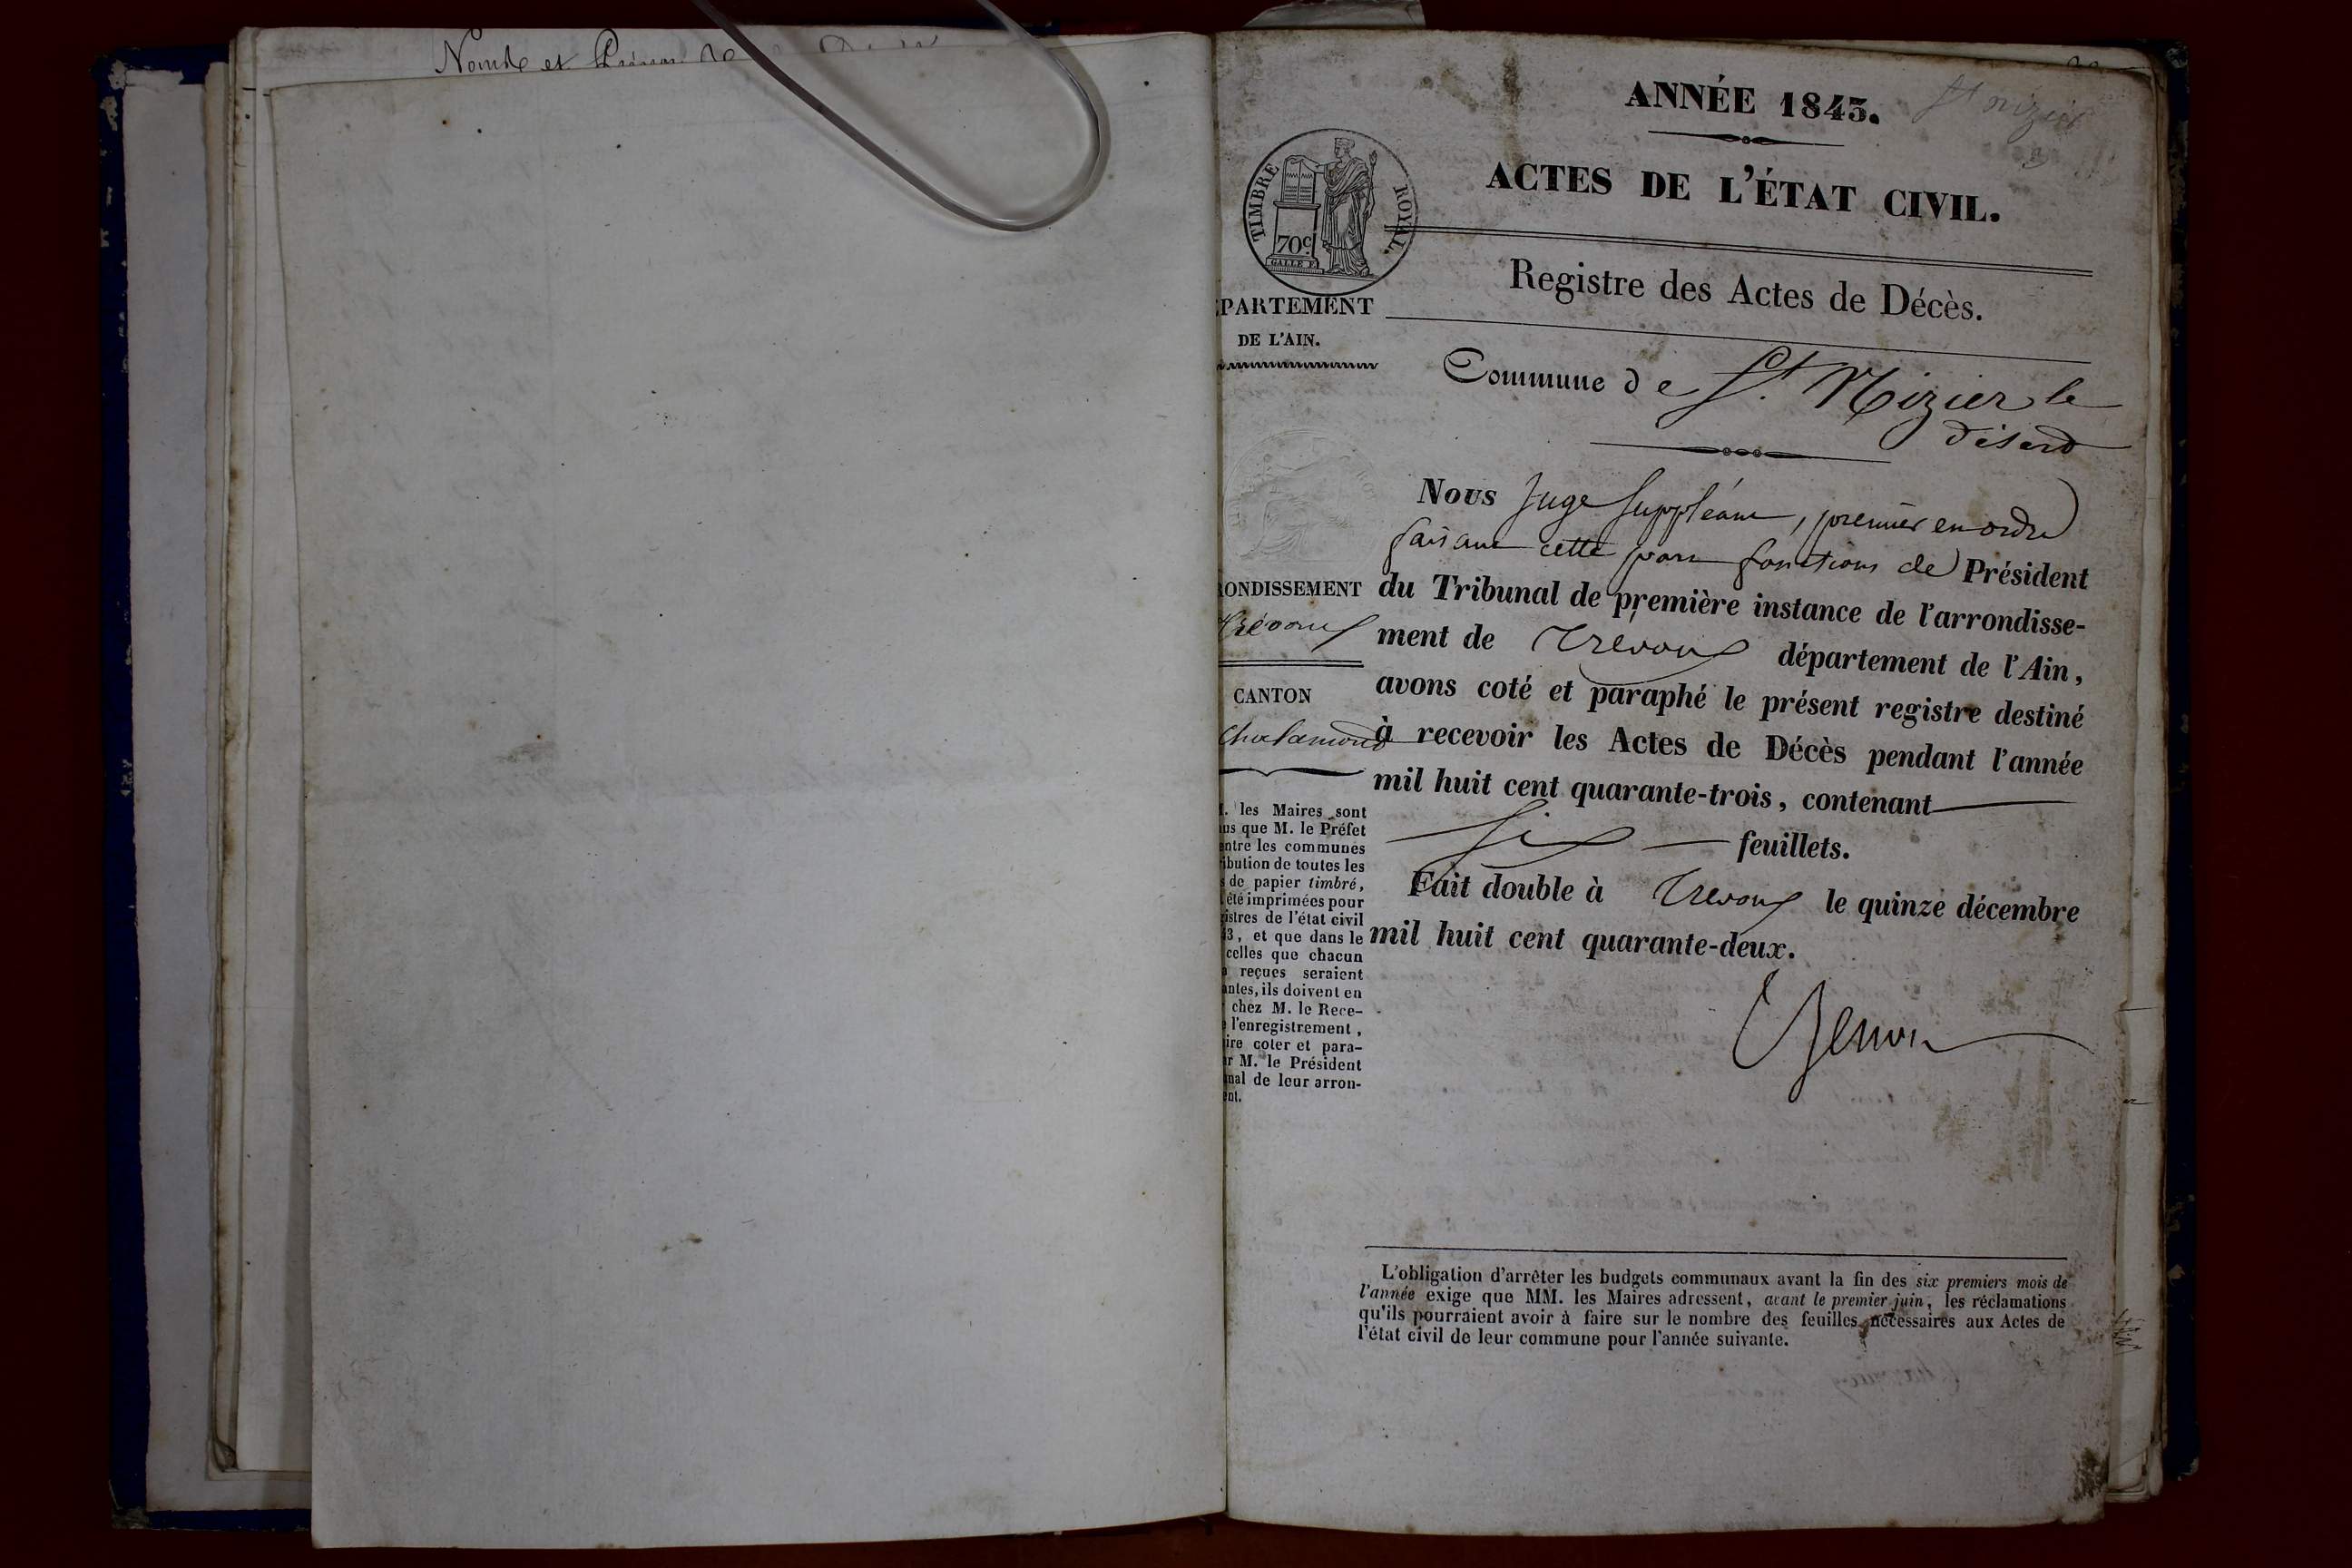 Noms et Prénoms de
ANNÉE 1843.
St nizier
ACTES DE L'ÉTAT CIVIL.
TIMBRE ROYAL.
70c
GALLE F.
Registre des Actes de Décès.
PARTEMENT
DE L'AIN.
Commune de St. Nizier le
désert
Nous Juge suppléant, premier en ordre
faisant cette part fonctions de Président
du Tribunal de première instance de l'arrondisse-
ment de Trévoux département de l'Ain,
avons coté et paraphé le présent registre destiné
à recevoir les Actes de Décès pendant l'année
mil huit cent quarante-trois, contenant
six feuillets.
Fait double à Trevoux le quinze décembre
mil huit cent quarante-deux.
RONDISSEMENT
Trévoux
CANTON
Chalamont
. les Maires sont
us que M. le Préfet
entre les communes
ibution de toutes les
s de papier timbré,
été imprimées pour
gistres de l'état civil
43, et que dans le
celles que chacun
reçues seraient
antes, ils doivent en
chez M. le Rece-
l'enregistrement,
ire coter et para-
r M. le Président
nal de leur arron-
ent.
L'obligation d'arrêter les budgets communaux avant la fin des six premiers mois de
l'année exige que MM. les Maires adressent, avant le premier juin, les réclamations
qu'ils pourraient avoir à faire sur le nombre des feuilles nécessaires aux Actes de
l'état civil de leur commune pour l'année suivante.